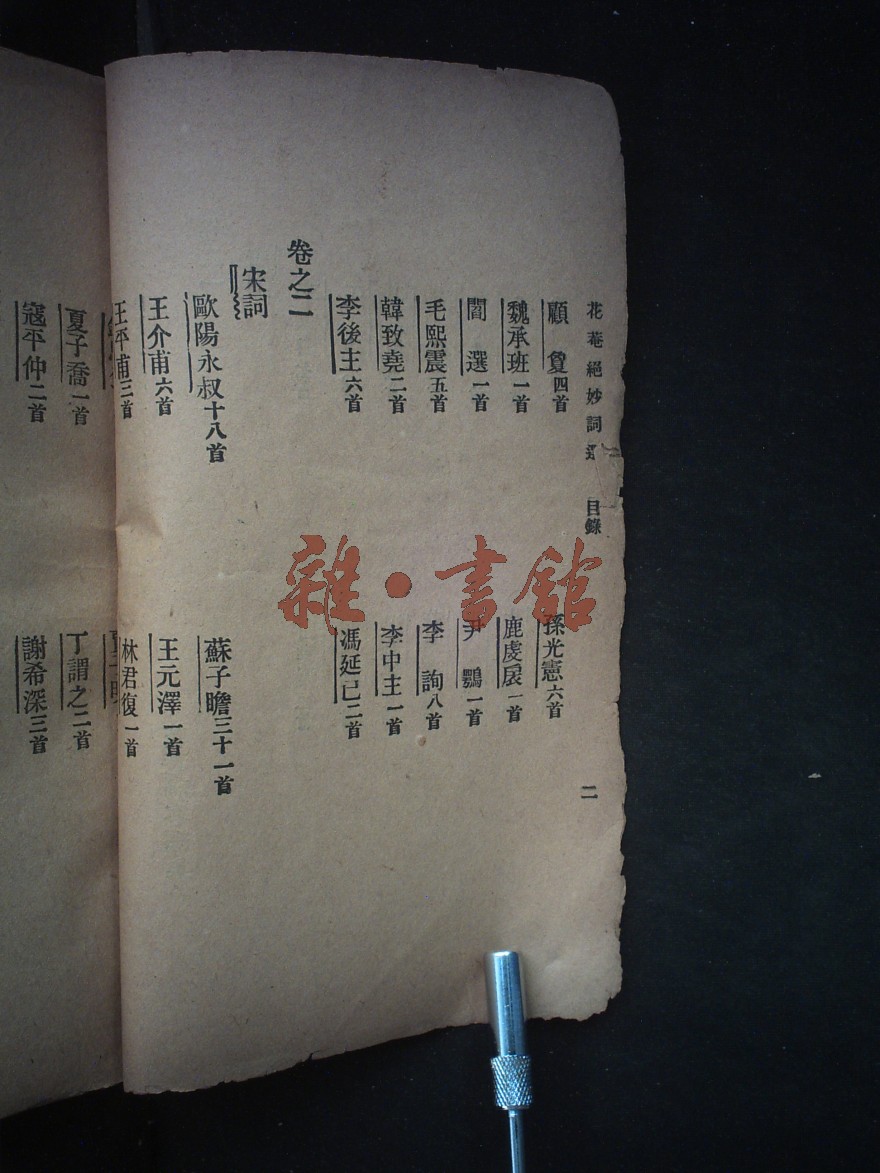 花菴絕妙詞選 目錄 二
顧敻四首
孫光憲六首
魏承班一首
鹿虔扆一首
閻選一首
尹鶚一首
毛熙震五首
李詢八首
韓致堯二首
李中主一首
李後主六首
馮延已二首
卷之二
宋詞
歐陽永叔十八首
蘇子瞻三十一首
王介甫六首
王元澤一首
王平甫三首
林君復一首
夏子喬一首
丁謂之二首
寇平仲二首
謝希深三首
雜·書館